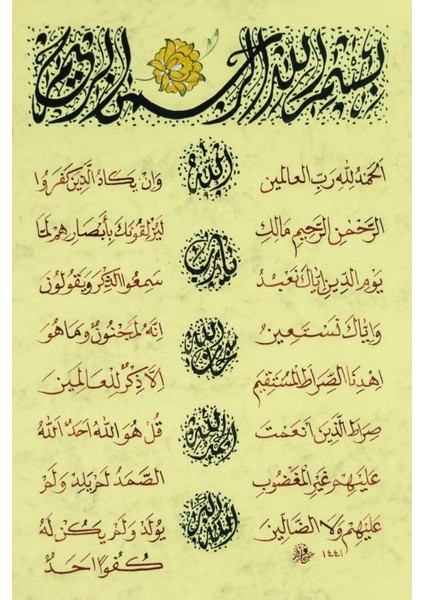 بسم الله الرحمن الرحيم
الحمد لله رب العالمين
الرحمن الرحيم مالك
يوم الدين اياك نعبد
واياك نستعين
اهدنا الصراط المستقيم
صراط الذين انعمت
عليهم غير المغضوب
عليهم ولا الضالين
١٤٤١
الله
يا رب
سبحان الله
الحمد لله
الله اكبر
وان يكاد الذين كفروا
ليزلقونك بأبصارهم لما
سمعوا الذكر ويقولون
انه لمجنون وما هو
الا ذكر للعالمين
قل هو الله احد الله
الصمد لم يلد ولم
يولد ولم يكن له
كفوا احد